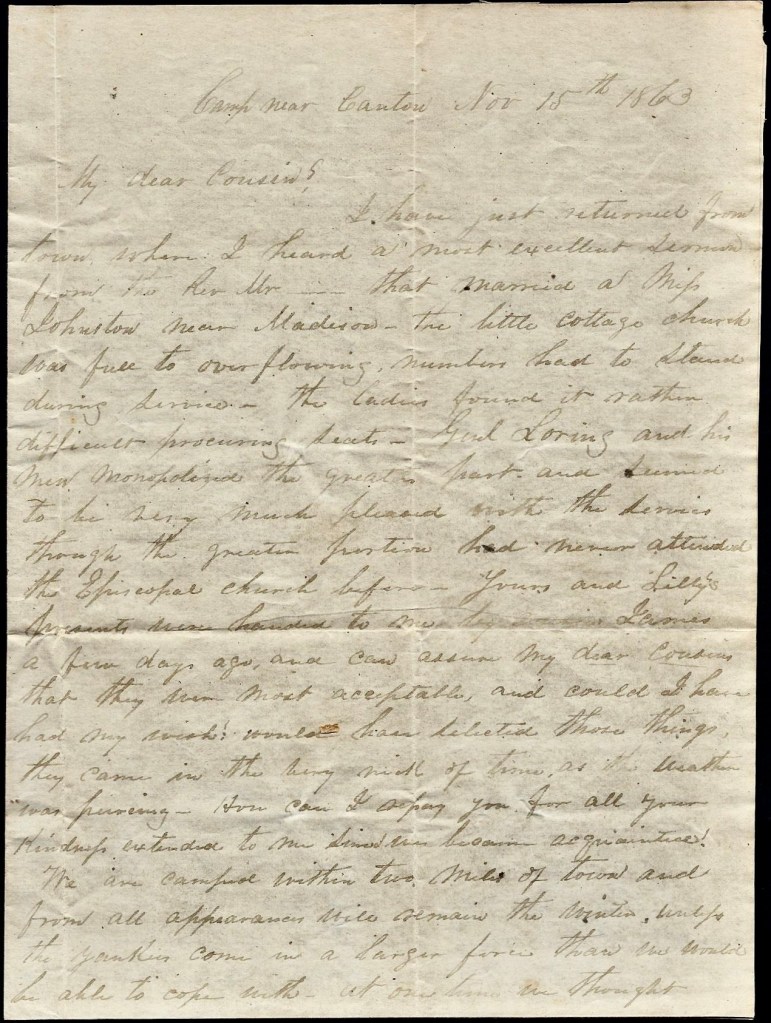 Camp near Canton Nov 15th 1863
My dear Cousin,
I have just returned from
town where I heard a most excellent sermon
from the Rev Mr — — that married a Miss
Johnston near Madison – the little cottage church
was full to overflowing, numbers had to stand
during service – the ladies found it rather
difficult procuring seats – Genl Loring and his
men monopolized the greater part and seemed
to be very much pleased with the service
though the greater portion had never attended
the Episcopal church before – Yours and Lilly's
presents were handed to me by James
a few days ago, and can assure my dear cousins
that they were most acceptable, and could I have
had my wish would have selected those things,
they came in the very nick of time, as the weather
was piercing – How can I repay you for all your
kindness extended to me since we became acquainted.
We are camped within two miles of town and
from all appearances will remain the winter unless
the yankees come in a larger force than we would
be able to cope with – at one time we thought